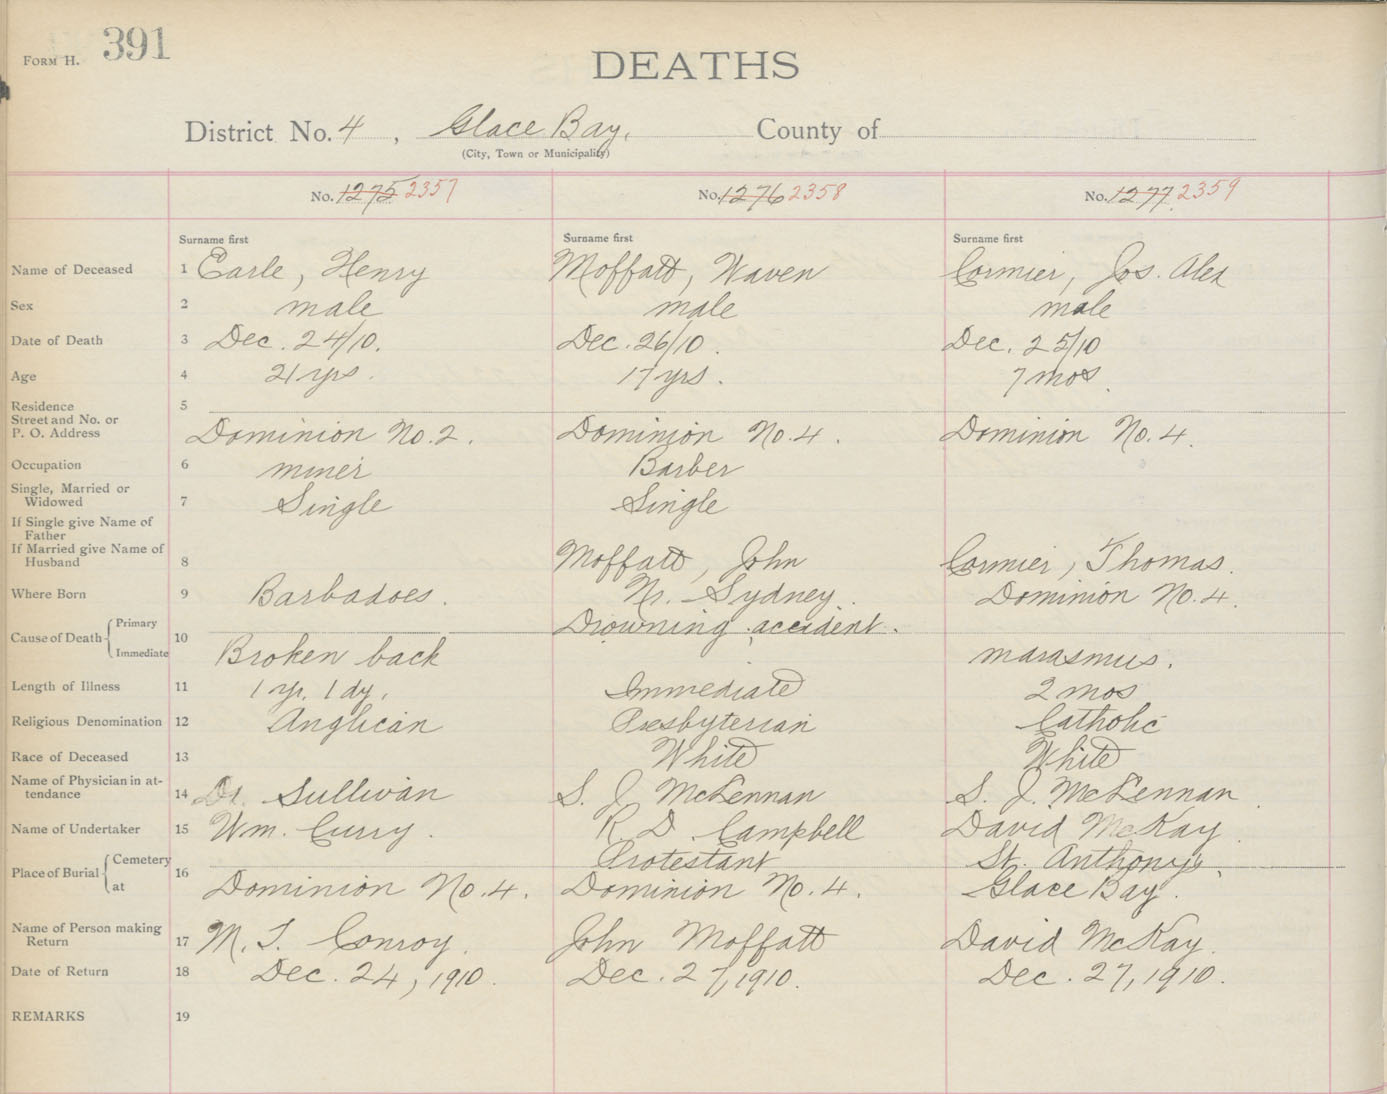 FORM H. 391
DEATHS
District No. 4, Glace Bay. County of
(City, Town or Municipality)
No. 1275 2357 No. 1276 2358 No. 1277 2359
Surname first Surname first Surname first
Name of Deceased 1 Earle, Henry Moffatt, Waven Cormier, Jos. Alex
Sex 2 male male male
Date of Death 3 Dec. 24/10. Dec. 26/10. Dec. 25/10
Age 4 21 yrs. 17 yrs. 7 mos.
Residence 5
Street and No. or
P. O. Address Dominion No. 2. Dominion No. 4. Dominion No. 4.
Occupation 6 miner Barber
Single, Married or
Widowed 7 Single Single
If Single give Name of
Father
If Married give Name of
Husband 8 Moffatt, John Cormier, Thomas.
Where Born 9 Barbadoes. Nr. Sydney. Dominion No. 4.
Primary Drowning accident.
Cause of Death 10
Immediate Broken back marasmus.
Length of Illness 11 1 yr. 1 dy. Immediate 2 mos
Religious Denomination 12 Anglican Presbyterian Catholic
Race of Deceased 13 White White
Name of Physician in at-
tendance 14 Dr. Sullivan S. J. McLennan S. J. McLennan.
Name of Undertaker 15 Wm. Curry. R. D. Campbell David McKay
Cemetery Protestant St. Anthony's.
Place of Burial 16
at Dominion No. 4. Dominion No. 4. Glace Bay.
Name of Person making
Return 17 M. T. Conroy. John Moffatt David McKay.
Date of Return 18 Dec. 24, 1910. Dec. 27, 1910. Dec. 27, 1910.
REMARKS 19